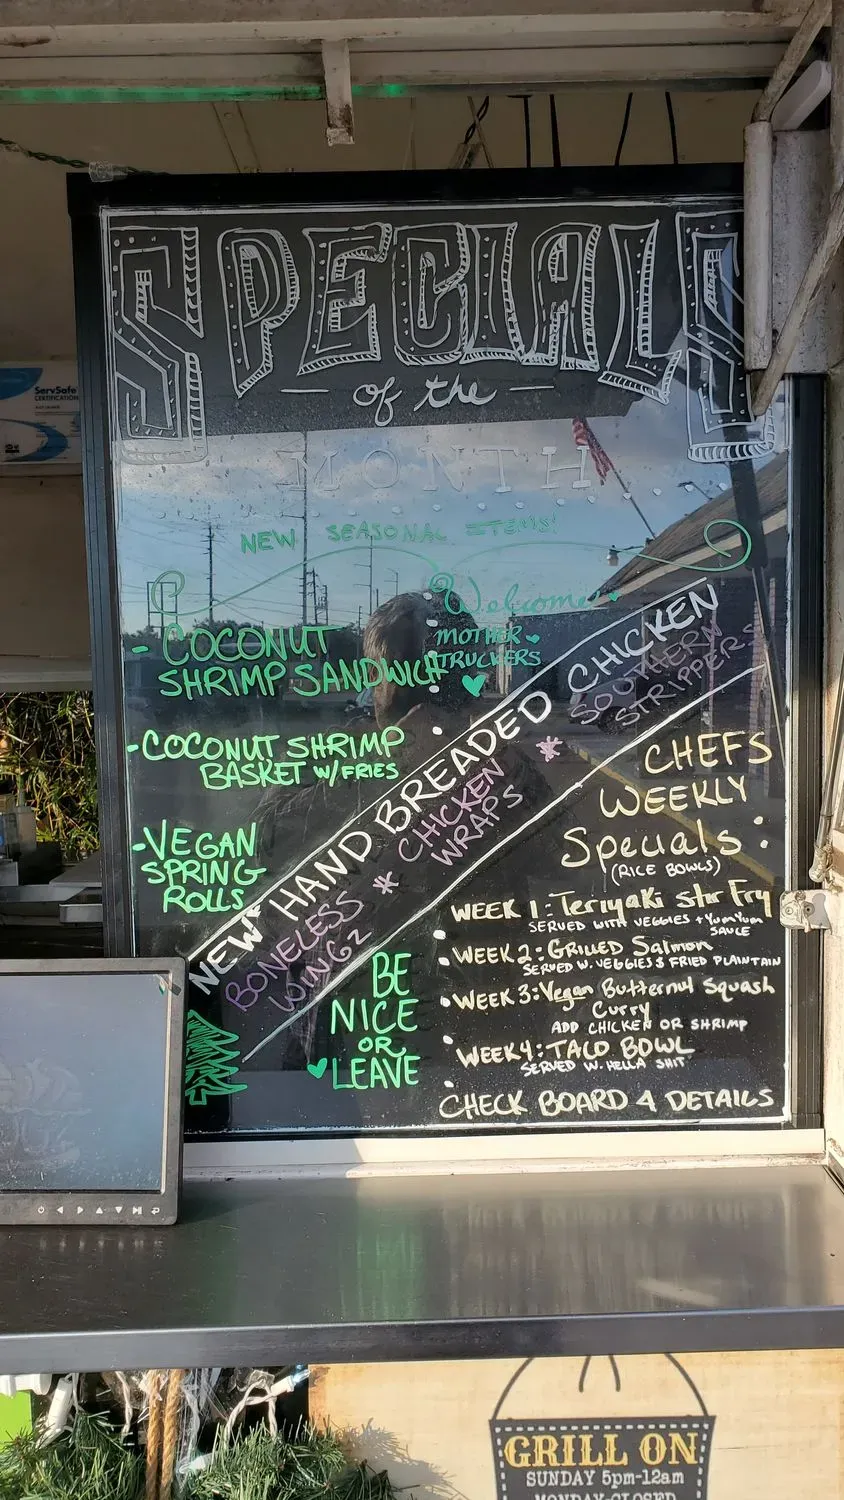 ServSafe
CERTIFICATION
SPECIALS
of the
MONTH
NEW SEASONAL ITEMS!
Welcome
MOTHER
TRUCKERS
- COCONUT
SHRIMP SANDWICH
- COCONUT SHRIMP
BASKET W/FRIES
- VEGAN
SPRING
ROLLS
NEW HAND BREADED CHICKEN
BONELESS
WINGZ
* CHICKEN
WRAPS
* SOUTHERN
STRIPPERS
BE
NICE
OR
LEAVE
CHEFS
WEEKLY
Specials:
(RICE BOWLS)
WEEK 1: Teriyaki stir Fry
SERVED WITH VEGGIES + YumYum
SAUCE
WEEK 2: GRILLED Salmon
SERVED W. VEGGIES & FRIED PLAINTAIN
WEEK 3: Vegan Butternut Squash
Curry
ADD CHICKEN OR SHRIMP
WEEK 4: TACO BOWL
SERVED W. HELLA SHIT
CHECK BOARD 4 DETAILS
GRILL ON
SUNDAY 5pm-12am
MONDAY-CLOSED